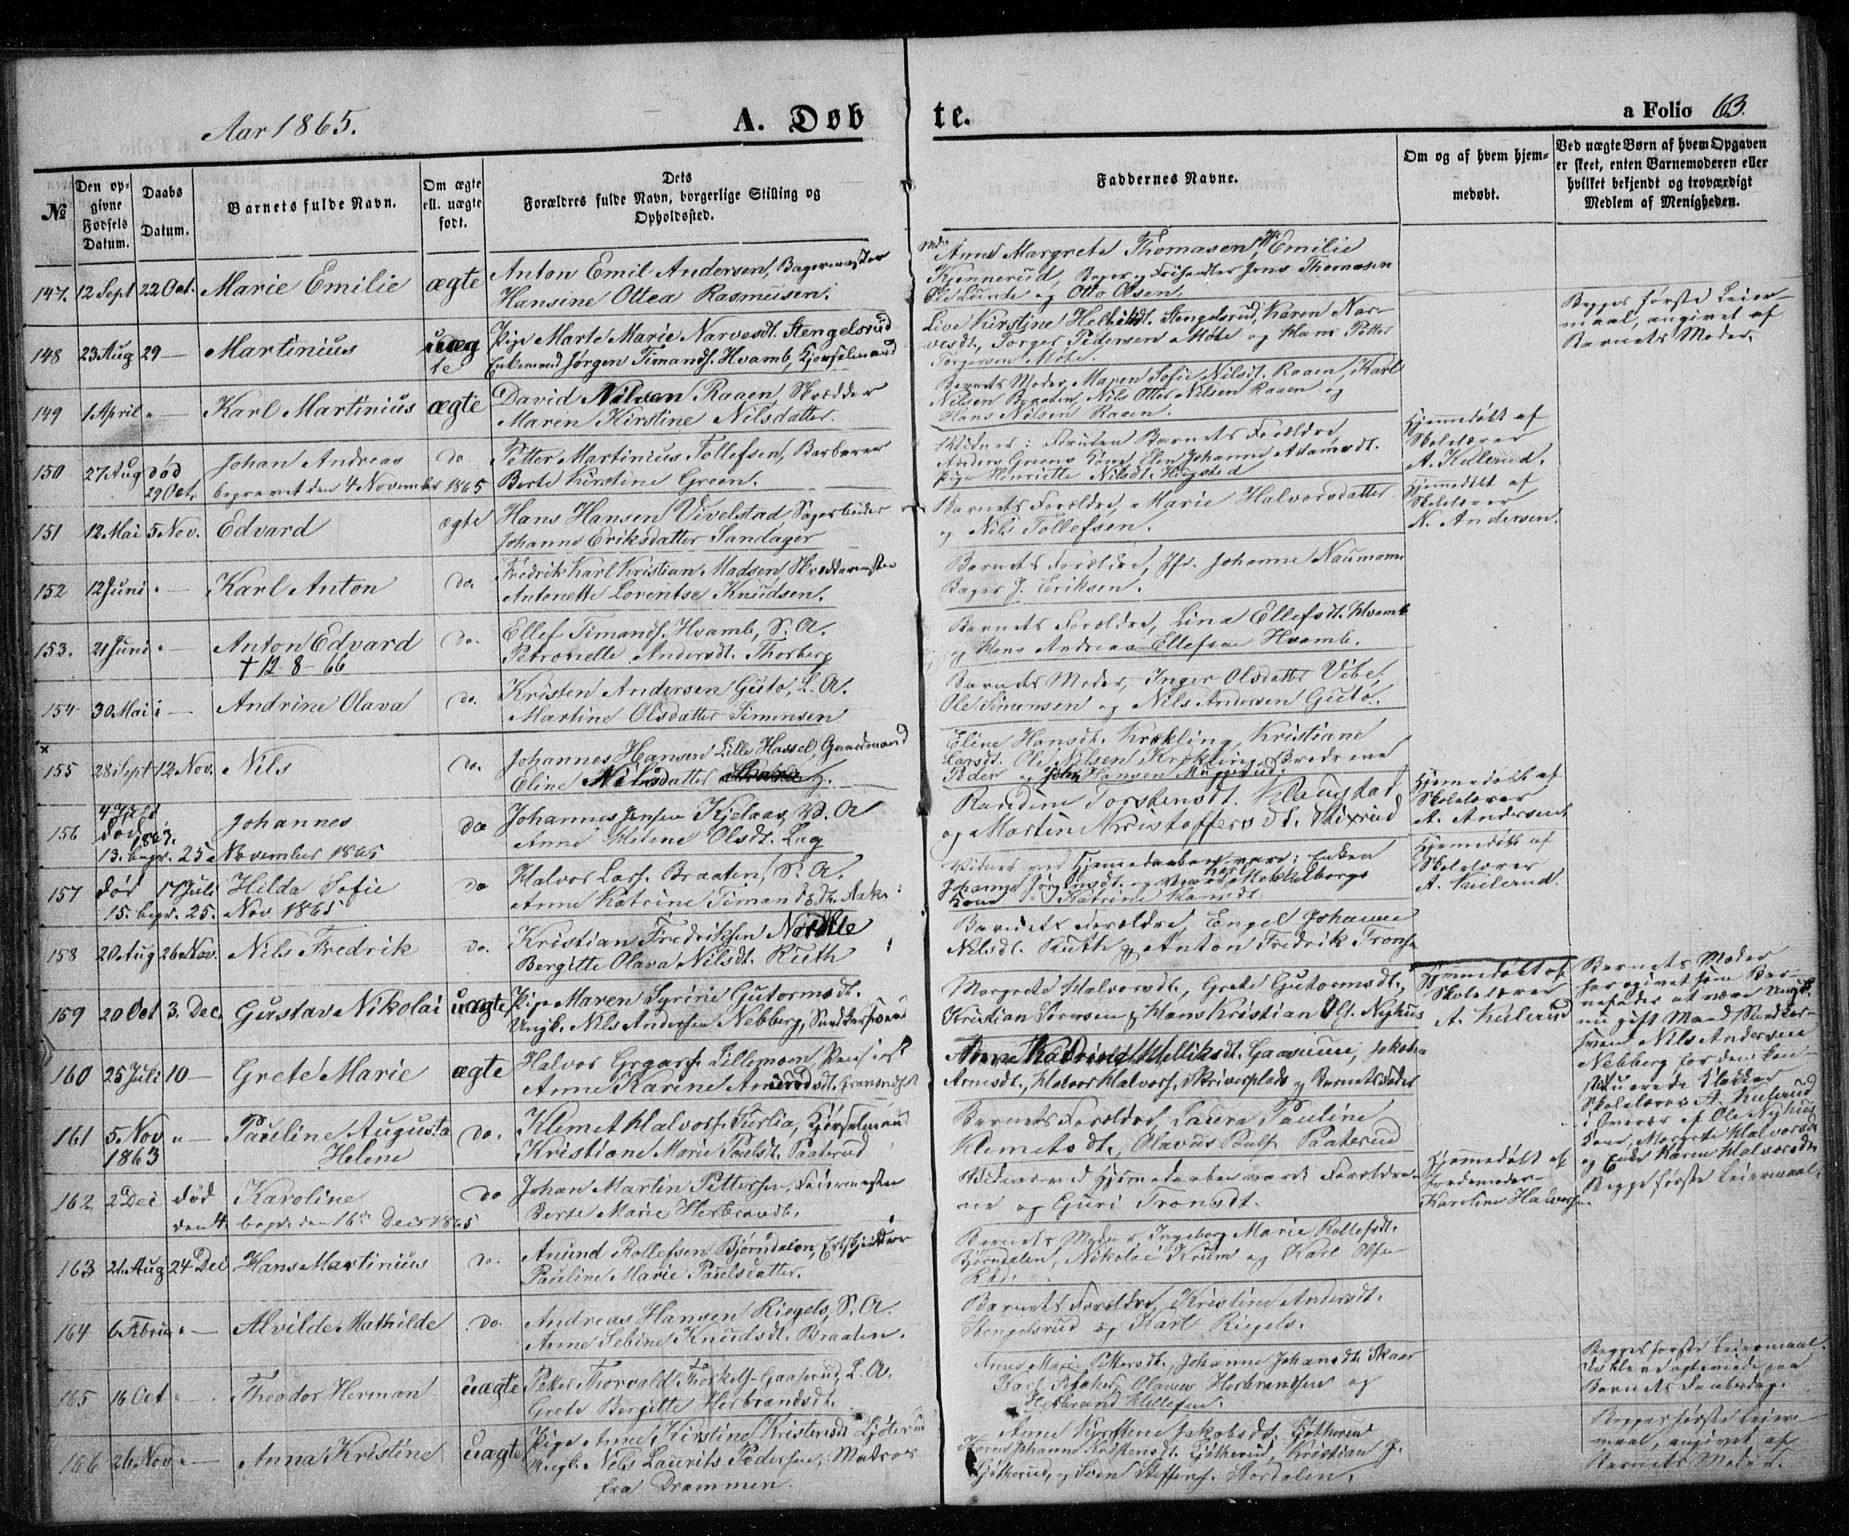 Aar 1865.
A. Døbte.
a Folio 63.
№
Den opgivne Fødsels Datum.
Daabs Datum.
Barnets fulde Navn.
Om ægte ell. uægte født.
Dets Forældres fulde Navn, borgerlige Stilling og Opholdssted.
Faddernes Navne.
Om og af hvem hjemmedøbt.
Ved uægte Børn af hvem Opgaven er skeet, enten Barnemoderen eller hvilket bekjendt og troværdigt Medlem af Menigheden.
147. 12 Sept 22 Oct. Marie Emilie ægte
Anton Emil Andersen, Bagermester
Hansine Ottea Rasmusen.
Anne Margrete Thomasen, Emilie
Kunnerud, Bager Jens Thomasen
Lunde og Otto Olsen.
148 23 Aug 29 — Martinius uægte
Pige Marte Marie Narvesdt. Stengelsrud
Enkemand Jørgen Timandsf. Hvamb, Kjørselmand
Live Kirstine Stengelsrud, Karen Narvesdt., Torger Pedersen Møte og Hans Petter
Torgersen Møte.
Begges første Leiermaal, angivet af
Barnets Moder.
149 1 April " — Karl Martinius ægte
David Nilsen Raaen, Skrædder
Maren Kirstine Nilsdatter.
Barnets Moder, Maren Sofie Nilsdt. Raaen, Karl
Nilsen Braaten, Nils Otter Nilsen Raaen og
Hans Nilsen Raaen.
150 27 Aug død 29 Oct. Johan Andreas do.
begravet den 4 November 1865
Petter Martinius Tollefsen, Barberer
Berte Kirstine Green.
Vidner: Foruden Barnets Forældre
Anders Greens Kone Elen Johanne Adamsdt.
Pige Henriette Nilsdt. Haugstad
Hjemmedøbt af
Skolelærer
A. Kulerud.
151 12 Mai 5 Nov. Edvard ægte
Hans Hansen Vivelstad Sagarbeider
Johanne Eriksdatter Sandager
Barnets Forældre, Marie Halvorsdatter
og Nils Tollefsen.
Hjemmedøbt af
Skolelærer
N. Andersen.
152 12 Juni " — Karl Anton do.
Fredrik Karl Kristian Madsen, Skræddermester
Antonette Lorentse Knudsen.
Barnets Forældre, Jfr. Johanne Naumann
Bager J. Eriksen.
153. 21 Juni " — Anton Edvard do.
† 12-8-66
Ellef Timandsf. Hvamb, S. A.
Petronelle Andersdt. Thorberg
Barnets Forældre, Lina Ellefsdt. Hvamb
og Hans Andreas Ellefsen Hvamb.
154 30 Mai " — Andrine Olava do.
Kristen Andersen Guto, L. A.
Martine Olsdatter Simensen
Barnets Moder, Inger Olsdatter Vibe,
Ole Simensen og Nils Andersen Guto.
x
155 28 Sept 12 Nov. Nils do.
Johannes Hansen Lille Hassel, Gaardmand
Eline Nilsdatter
Eline Hansdt. Krekling, Kristiane
Larsdt. Ole Nilsen Krekling, Brødrene
Peder og John Hansen
156 4 Juli død 13. begr. 25. November 1865 Johannes do
Johannes Jensen Kjelaas, S. A
Anne Helene Olsdt. Lag
Randine Torstensdt. Klaugstad
og Martin Kristoffers
Hjemmedøbt af
Skolelærer
A. Andersen
157 død 17 Juli Hilda Sofie do
15. begr. 25. Nov 1865
Halvor Larsf. Braaten, S. A.
Anne Katrine Timandsdt.
Vidner ved Hjemmedaaben vare: Enken
Johanne Jørgensdt. og
Kone Katrine Hansdt.
Hjemmedøbt af
Skolelærer
A. Kulerud.
158 20 Aug 26 Nov. Nils Fredrik do.
Kristian Fredriksen
Bergitte Olava Nilsdt. Ruth
Barnets Forældre, Engel Johanne
Nilsdt. Ruth & Anton Fredrik
159 20 Oct 3. Dec. Gustav Nikolai uægte
Pige Maren Syrine Gutormsdt.
Ungk. Nils Andersen Nebberg, Snedkersvend
Margrete Halvorsdt., Grete Gutormsdt.,
Kristian Sørensen & Hans Kristian Ols. Nyhus
Hjemmedøbt af
Skolelærer
A. Kulerud
Barnets Moder
har opgivet som Barnefader at være Ungk.
nu gift Mand, Snedkersvend Nils Andersen
Nebberg for den constituerede Klokker
Skolelærer A. Kulerud
i Overvær af Ole Nyhus
Kone, Margrete Halvorsdt.
og Enke Karen Halvorsdt.
Begges første Leiermaal.
160 25 Juli 10 — Grete Marie ægte
Halvor Gregersf. Tillemoen,
Anne Karine Amundsdt.
Anne Katrine Gaasmoe, Jakobea
Arnesdt., Halvor Halvorsf. Skriverplads og Barnets Fader
161 5 Nov 1863 " — Pauline Augusta Helene do.
Klemet Halvorsf. Furlia, Kjørselmand
Kristiane Marie Poulsdt. Paaterud
Barnets Forældre, Laura Pauline
Klemetsdt., Olavus Poulsf. Paaterud
162 2 Dec død den 4. Karoline do
begr. den 16de Decbr 1865
Johan Martin Pettersen, Feiermester
Berte Marie Herbrandsdt.
Vidner ved Hjemmedaaben vare Forældrene og Guri Tronsdt.
Hjemmedøbt af
Jordemoder
Karoline Halvorsen
163 21 Aug 24 Dec Hans Martinius do.
Amund Rollefsen Bjørndalen,
Pauline Marie Paulsdatter.
Barnets Moder, Ingeborg Marie Rollefsdt.
Bjørndalen, Nikolai Krum og Karl Olsen
164 6 Febru " — Alvilde Mathilde do.
Andreas Hansen Riegels, S. A.
Anne Sebine Knudsdt. Braaten.
Barnets Forældre, Kristine Andersdt.
Stengelsrud og Karl Riegels.
165 16 Oct " — Theodor Herman uægte
Petter Thorvald Thorkelsf. Gaaserud, L. A.
Grete Bergitte Herbrandsdt.
Anne Marie Pettersdt., Johanne Johansdt. Skaar
Karl Olaves Herbrandsen og
Herbrand
Begges første Leiermaal.
Forældrene ægteviede paa
Barnets Daabsdag.
166 26 Nov " — Anna Kristine uægte
Pige Anne Kirstine Kristensdt
Ungk. Nils Laurits Pedersen, Matros
fra Drammen.
Anne Kirstine Jakobsdt. Gjøtherud
Karen Johanne Gjøtherud, Kristian J.
Gjøtherud, og Sven Steffensf. Stordalen.
Begges første Leiermaal, angivet af
Barnets Moder.